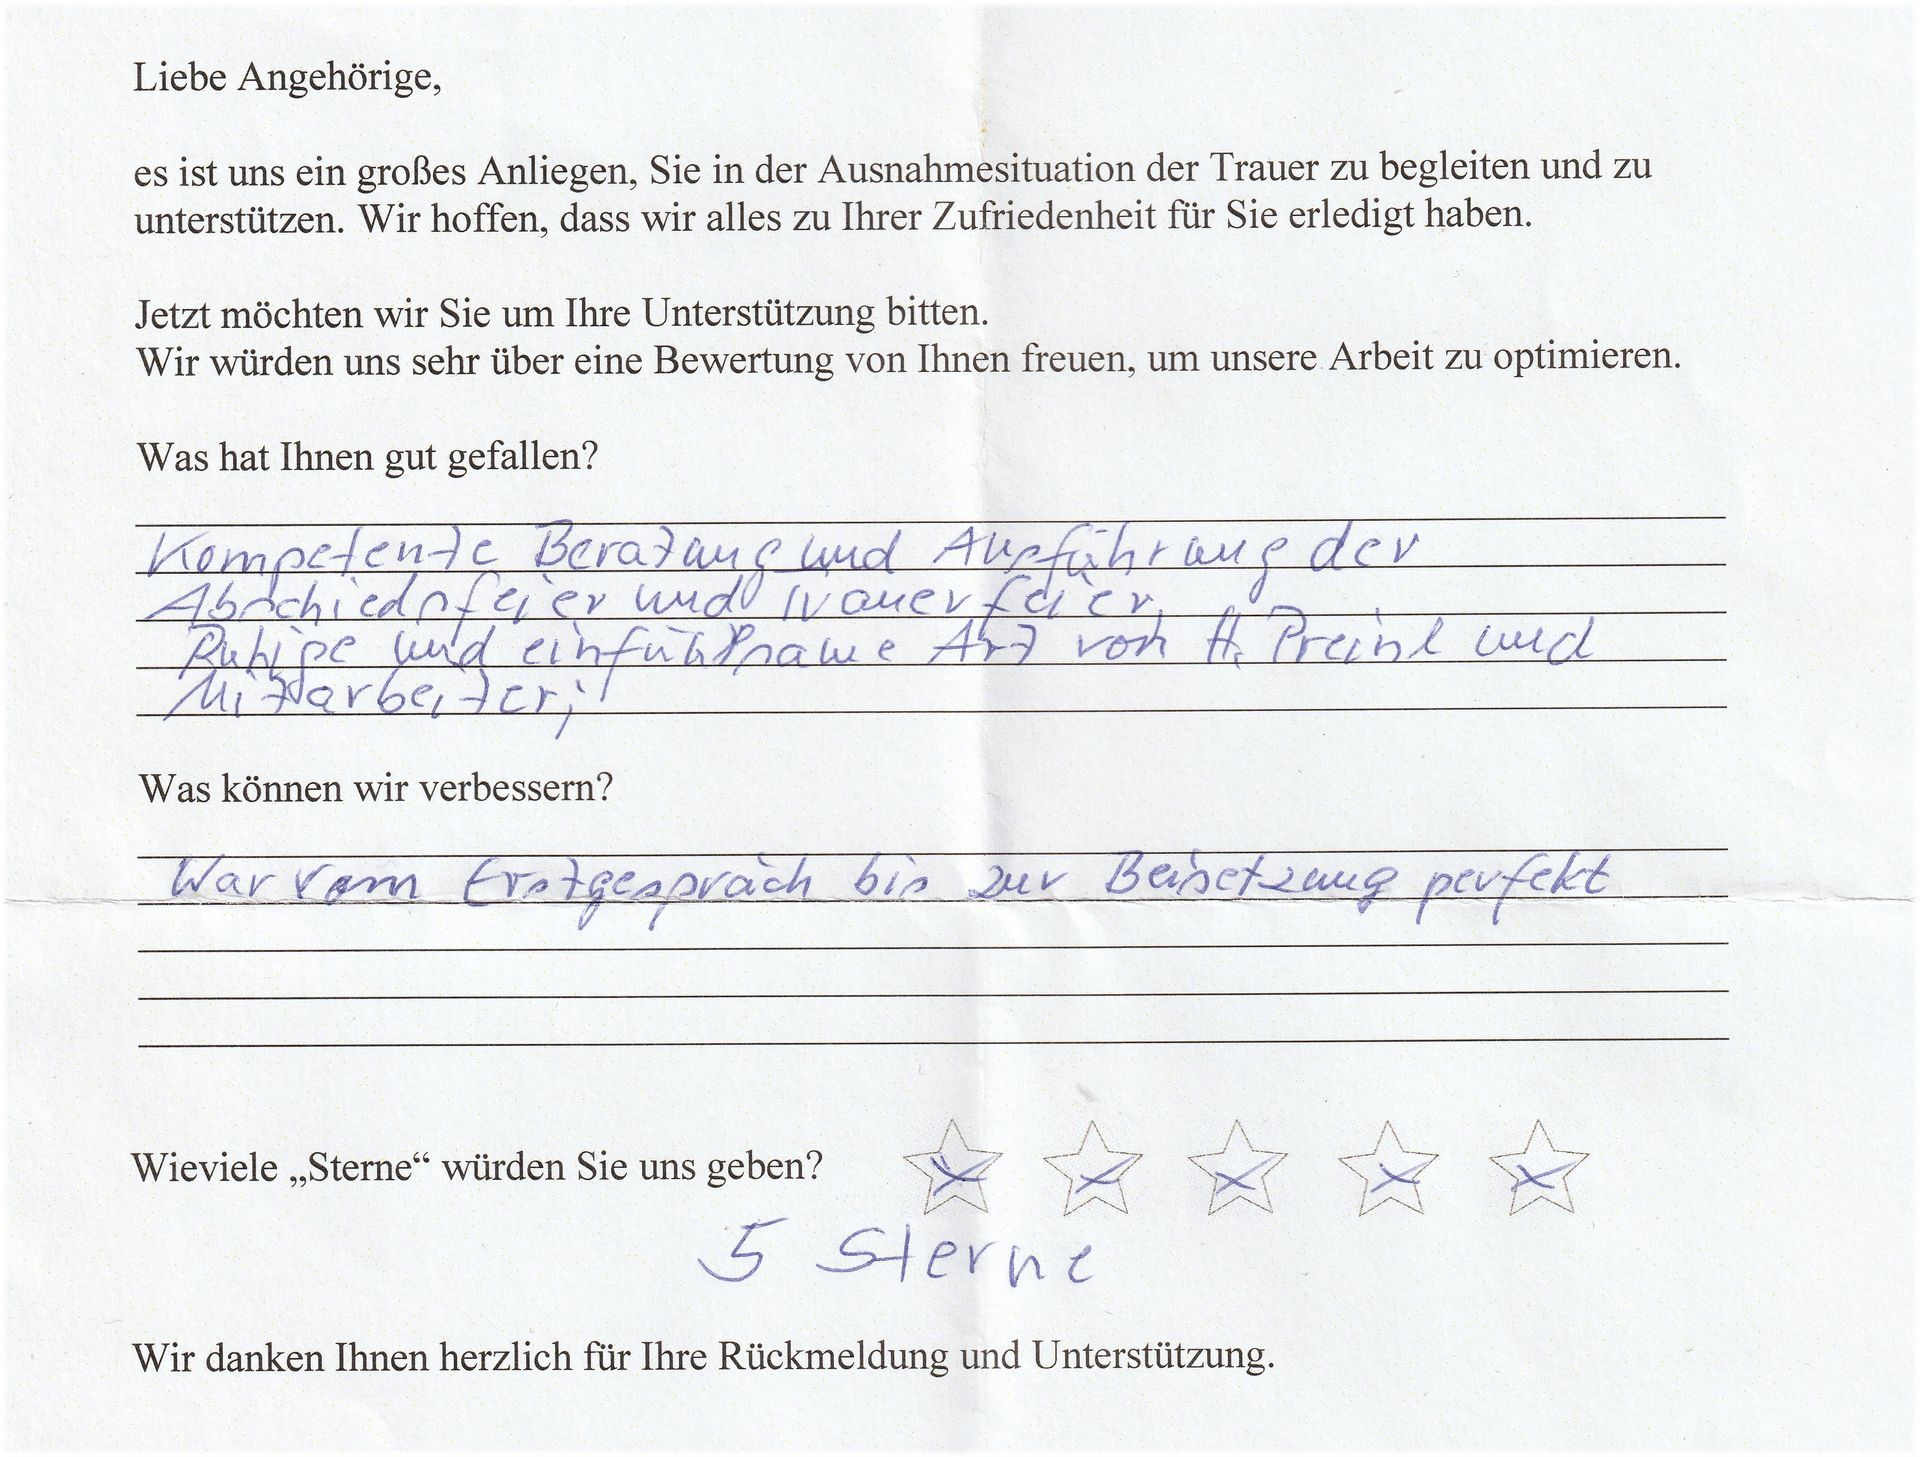 Liebe Angehörige,
es ist uns ein großes Anliegen, Sie in der Ausnahmesituation der Trauer zu begleiten und zu
unterstützen. Wir hoffen, dass wir alles zu Ihrer Zufriedenheit für Sie erledigt haben.
Jetzt möchten wir Sie um Ihre Unterstützung bitten.
Wir würden uns sehr über eine Bewertung von Ihnen freuen, um unsere Arbeit zu optimieren.
Was hat Ihnen gut gefallen?
Kompetente Beratung und Ausführung der
Abschiedsfeier und Trauerfeier,
Ruhige und einfühlsame Art von H. Preinl und
Mitarbeiter;
Was können wir verbessern?
War vom Erstgespräch bis zur Beisetzung perfekt
Wieviele „Sterne“ würden Sie uns geben?
5 Sterne
Wir danken Ihnen herzlich für Ihre Rückmeldung und Unterstützung.